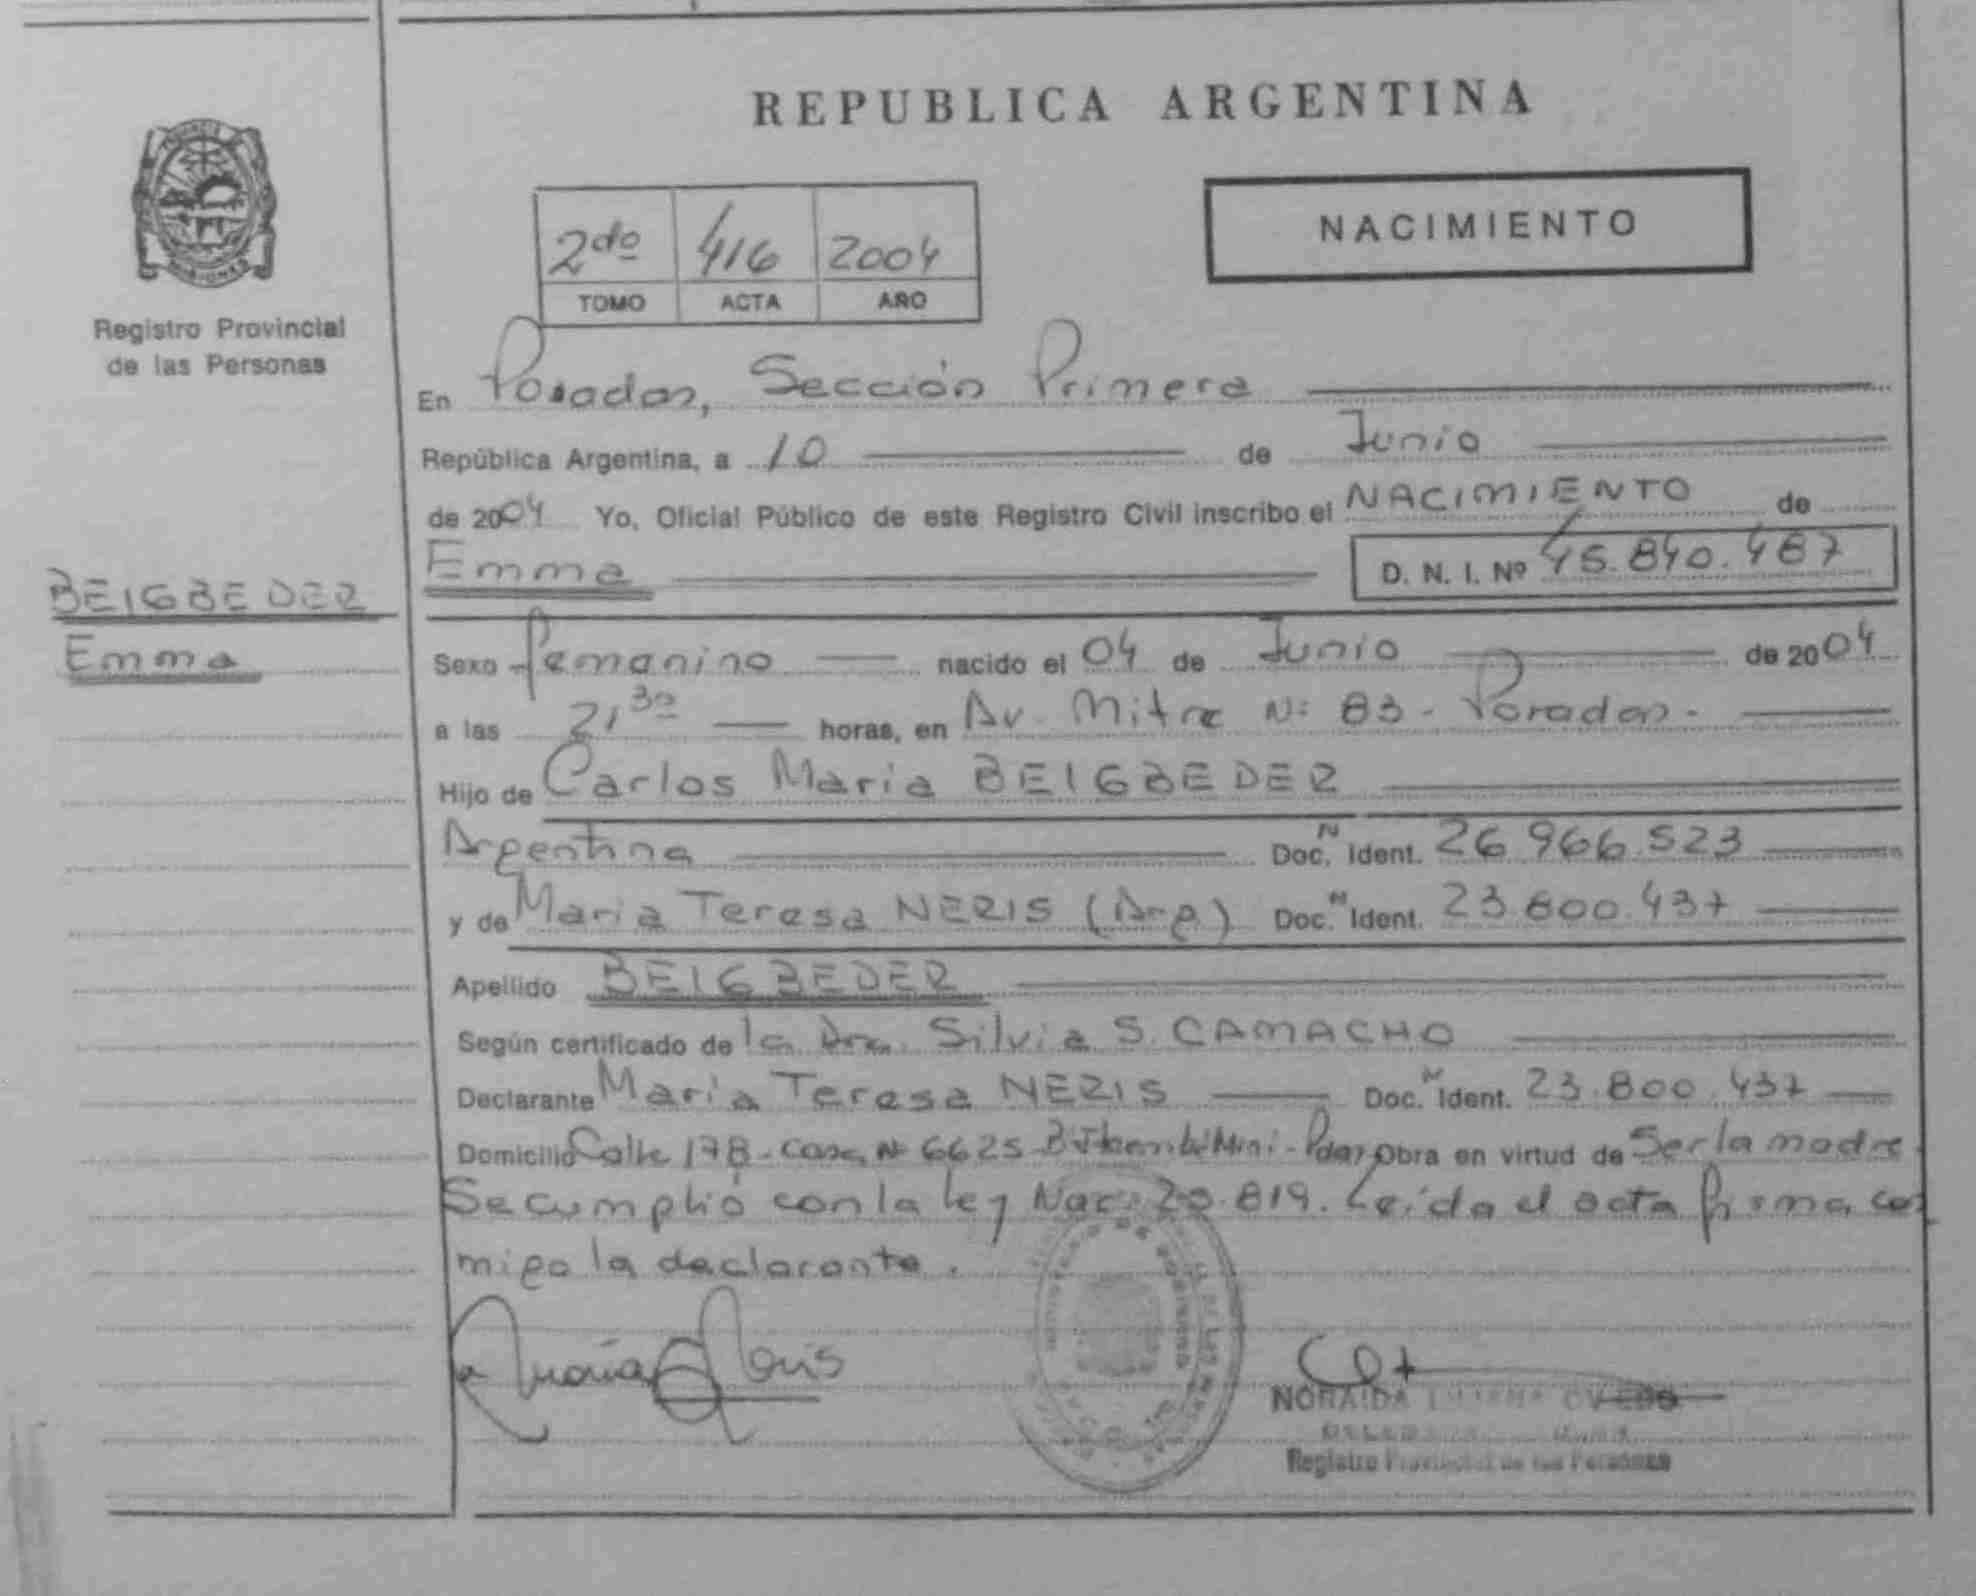 REPUBLICA ARGENTINA
NACIMIENTO
2do 416 2004
TOMO ACTA AÑO
Registro Provincial
de las Personas
En Posadas, Sección Primera
República Argentina, a 10 de Junio
de 2004 Yo, Oficial Público de este Registro Civil inscribo el NACIMIENTO de
Emma D. N. I. Nº 45.840.467
BEIGBEDER
Emma
Sexo femenino nacido el 04 de Junio de 2004
a las 21 30 horas, en Av. Mitre Nº 83 - Posadas -
Hijo de Carlos Maria BEIGBEDER
Argentina Doc. N Ident. 26.966.523
y de Maria Teresa NERIS (Arg) Doc. N Ident. 23.800.437
Apellido BEIGBEDER
Según certificado de la Dra. Silvia S. CAMACHO
Declarante Maria Teresa NERIS Doc. N Ident. 23.800.437
Domicilio Calle 178 - Casa Nº 6625 Obra en virtud de Ser la madre
Se cumplió con la ley Nac. 20.819. Leída el acta firma con
migo la declarante.
Maria Neris
NORAIDA
Registro Provincial de las Personas